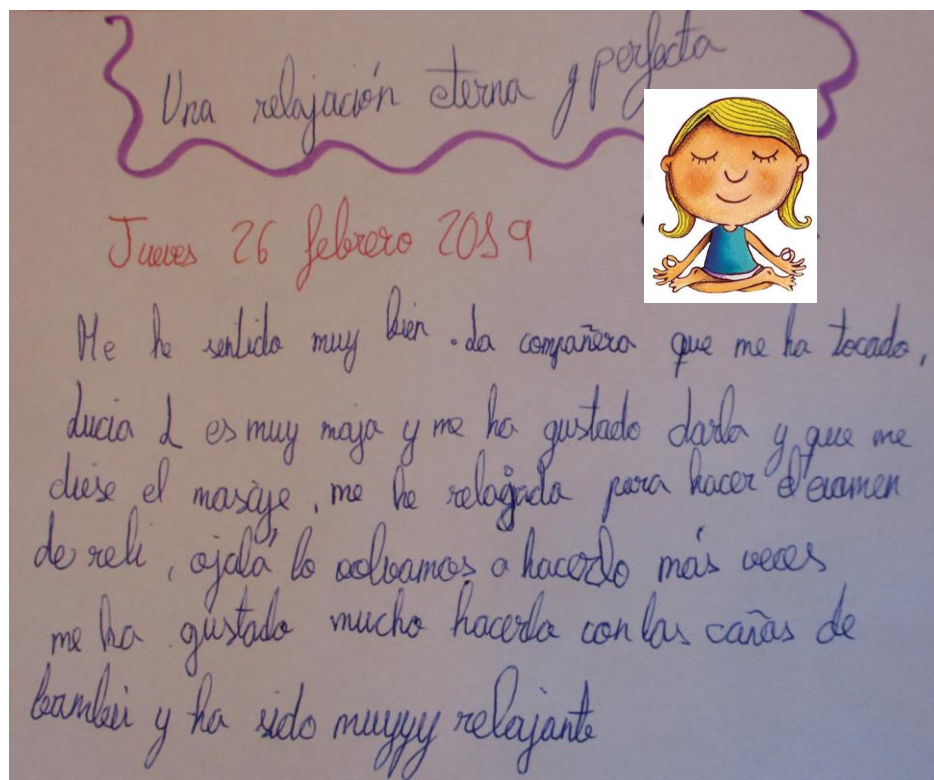 Una relajación eterna y perfecta
Jueves 26 febrero 2019
Me he sentido muy bien. La compañera que me ha tocado,
Lucia L es muy maja y me ha gustado darla y que me
diese el masaje, me he relajada para hacer el examen
de reli, ojalá lo volvamos a hacerlo más veces
me ha gustado mucho hacerlo con las cañas de
bambú y ha sido muyyy relajante